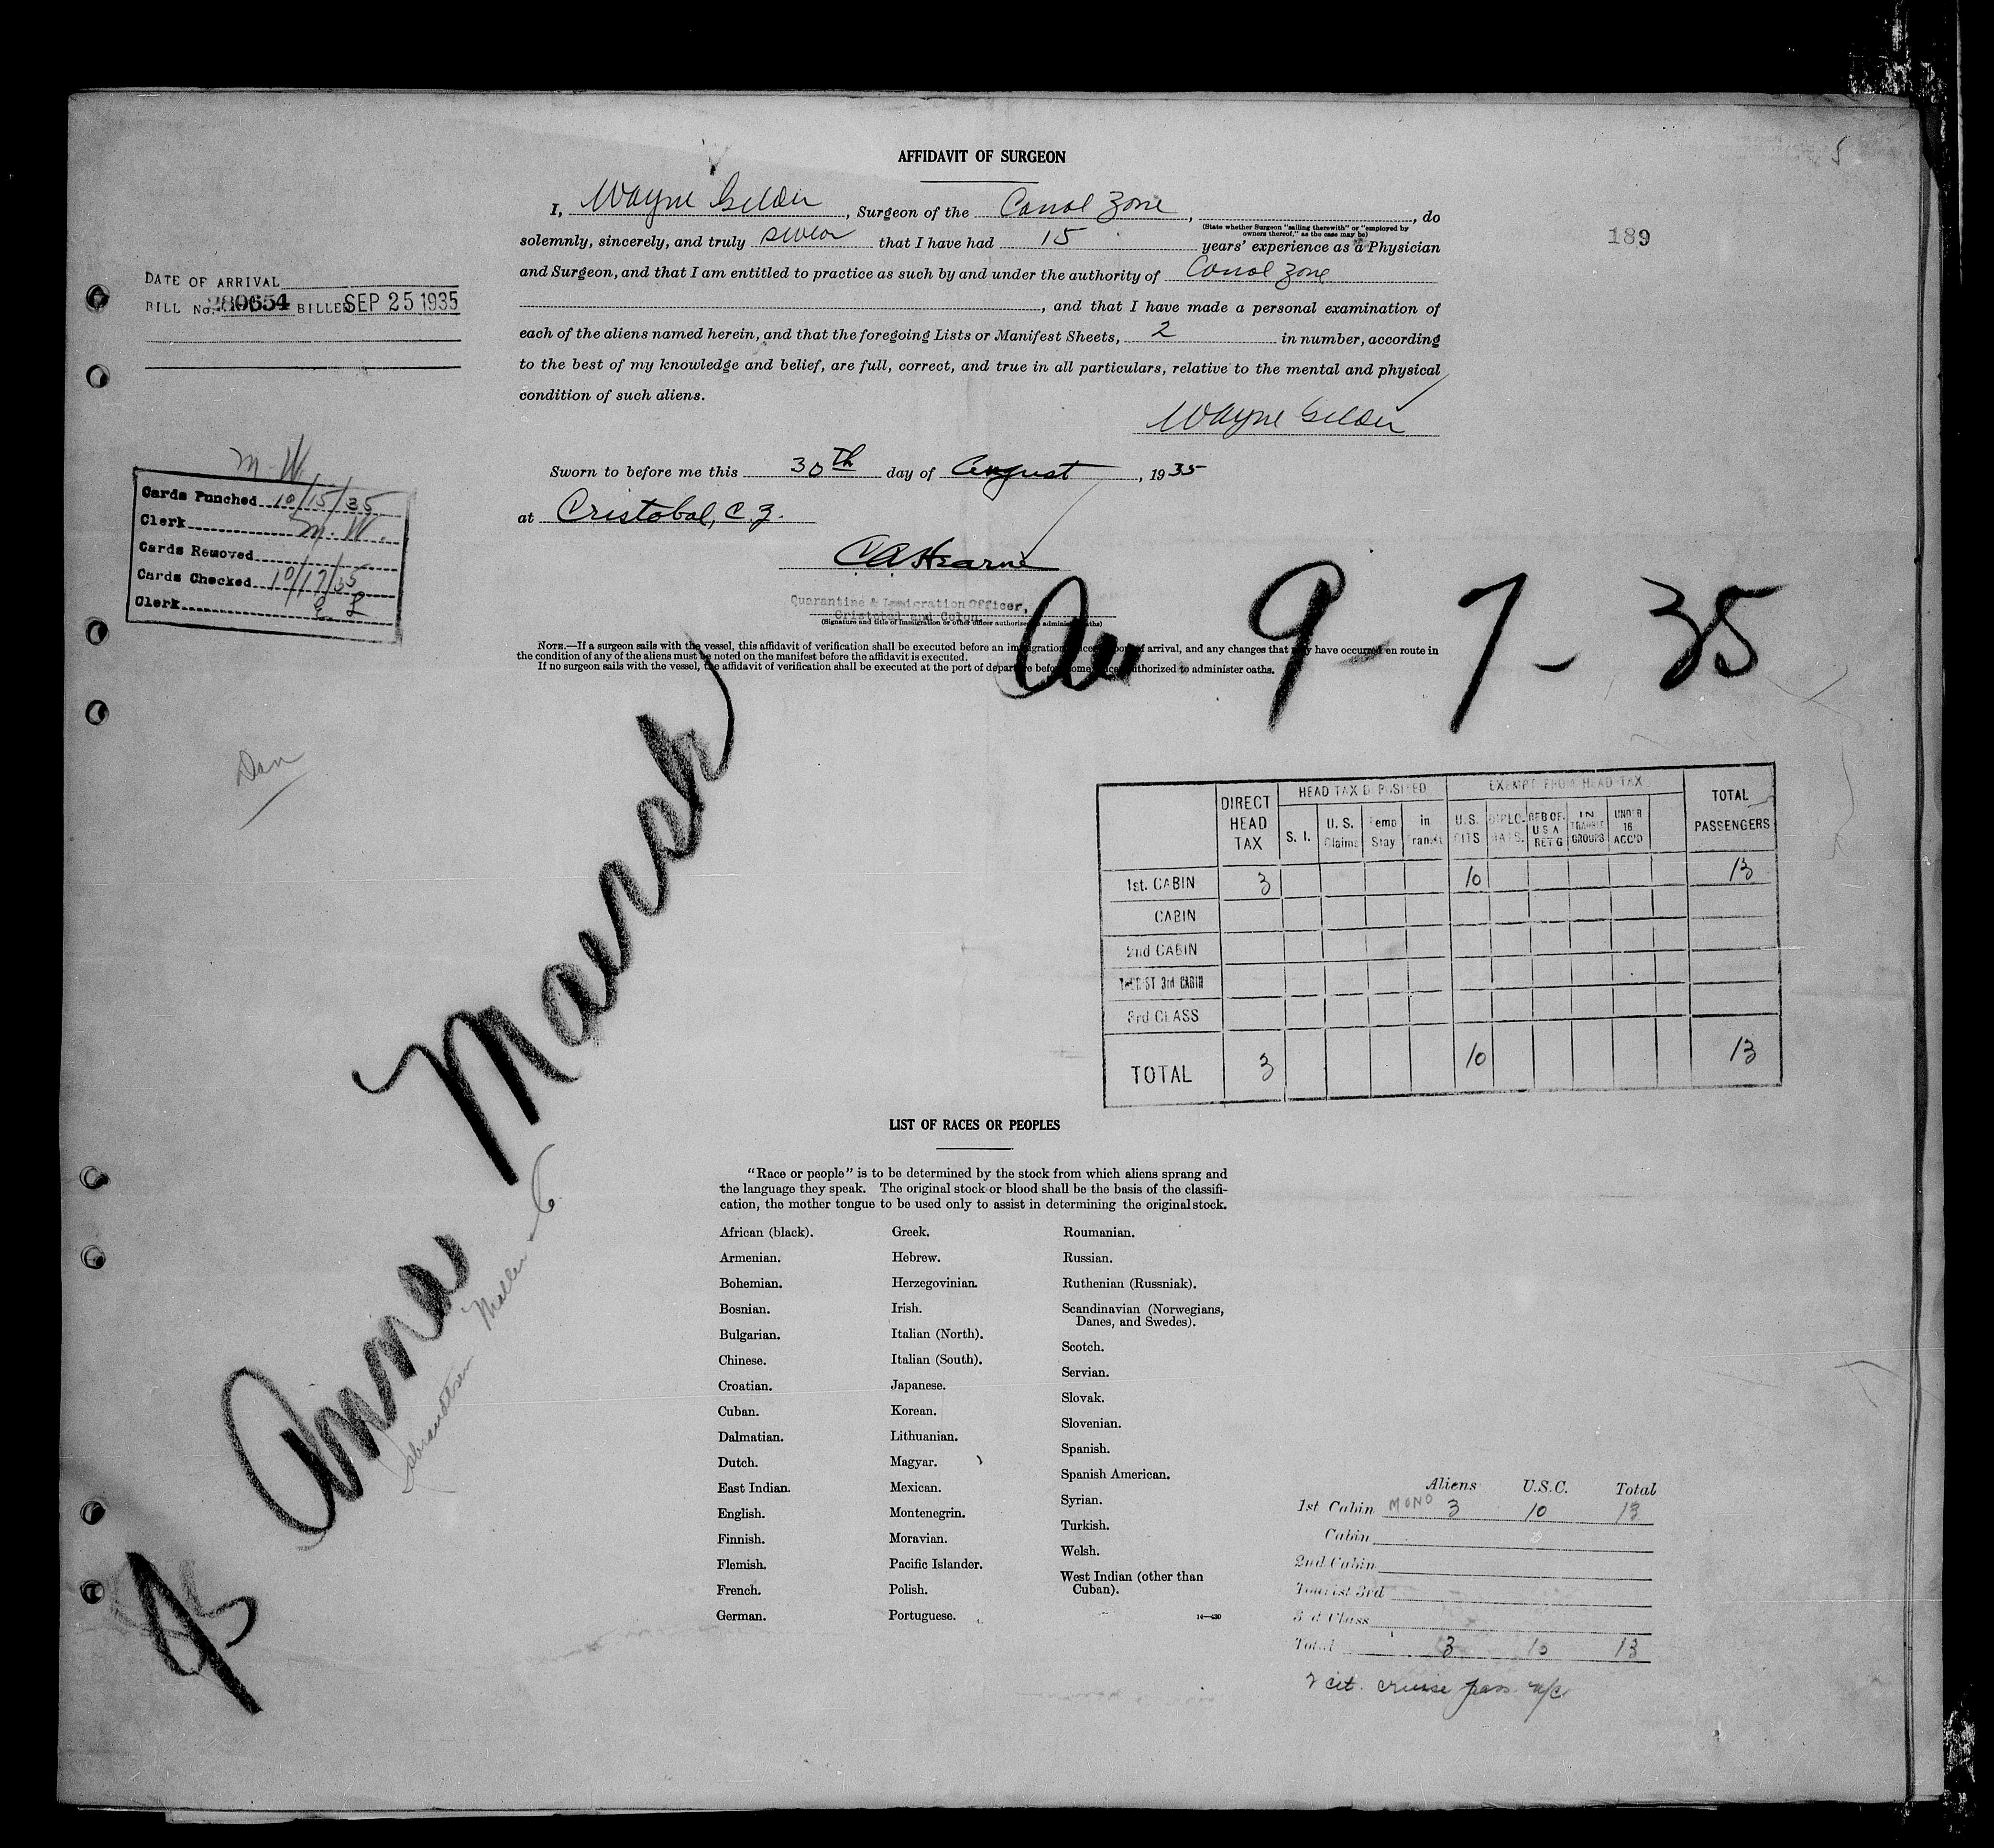 AFFIDAVIT OF SURGEON
I, Wayne Gilder, Surgeon of the Canal Zone, , do
(State whether Surgeon "sailing therewith" or "employed by
owners thereof," as the case may be)
solemnly, sincerely, and truly swear that I have had 15 years' experience as a Physician
and Surgeon, and that I am entitled to practice as such by and under the authority of Canal Zone
, and that I have made a personal examination of
each of the aliens named herein, and that the foregoing Lists or Manifest Sheets, 2 in number, according
to the best of my knowledge and belief, are full, correct, and true in all particulars, relative to the mental and physical
condition of such aliens.
Wayne Gilder
Sworn to before me this 30th day of August, 1935
at Cristobal, C.Z.
CA Hearne
Quarantine & Immigration Officer,
Cristobal and Colon.
(Signature and title of immigration or other officer authorized to administer oaths)
NOTE.—If a surgeon sails with the vessel, this affidavit of verification shall be executed before an immigration officer port of arrival, and any changes that may have occurred en route in
the condition of any of the aliens must be noted on the manifest before the affidavit is executed.
If no surgeon sails with the vessel, the affidavit of verification shall be executed at the port of departure before some officer authorized to administer oaths.
189
5
DATE OF ARRIVAL
BILL No. 289654 BILLED SEP 25 1935
M. W.
Cards Punched 10/15/35
Clerk M. W.
Cards Removed
Cards Checked 10/17/35
Clerk
Dan
9-7-35
Anna Maersk
DIRECT HEAD TAX
HEAD TAX DEPOSITED
EXEMPT FROM HEAD TAX
TOTAL PASSENGERS
S. I. U. S. Claims Temp Stay in Transit U.S. CITS DIPLOMATS. REB OF. U S A RET G IN TRANSIT GROUPS UNDER 16 ACC'D
1st. CABIN 3 10 13
CABIN
2nd CABIN
TOURIST 3rd CABIN
3rd CLASS
TOTAL 3 10 13
LIST OF RACES OR PEOPLES
"Race or people" is to be determined by the stock from which aliens sprang and
the language they speak. The original stock or blood shall be the basis of the classifi-
cation, the mother tongue to be used only to assist in determining the original stock.
African (black).
Armenian.
Bohemian.
Bosnian.
Bulgarian.
Chinese.
Croatian.
Cuban.
Dalmatian.
Dutch.
East Indian.
English.
Finnish.
Flemish.
French.
German.
Greek.
Hebrew.
Herzegovinian.
Irish.
Italian (North).
Italian (South).
Japanese.
Korean.
Lithuanian.
Magyar.
Mexican.
Montenegrin.
Moravian.
Pacific Islander.
Polish.
Portuguese.
Roumanian.
Russian.
Ruthenian (Russniak).
Scandinavian (Norwegians,
Danes, and Swedes).
Scotch.
Servian.
Slovak.
Slovenian.
Spanish.
Spanish American.
Syrian.
Turkish.
Welsh.
West Indian (other than
Cuban).
14—430
Aliens U.S.C. Total
1st Cabin MONO 3 10 13
Cabin
2nd Cabin
Tourist 3rd
3rd Class
Total 3 10 13
2 cit. cruise pass n/c